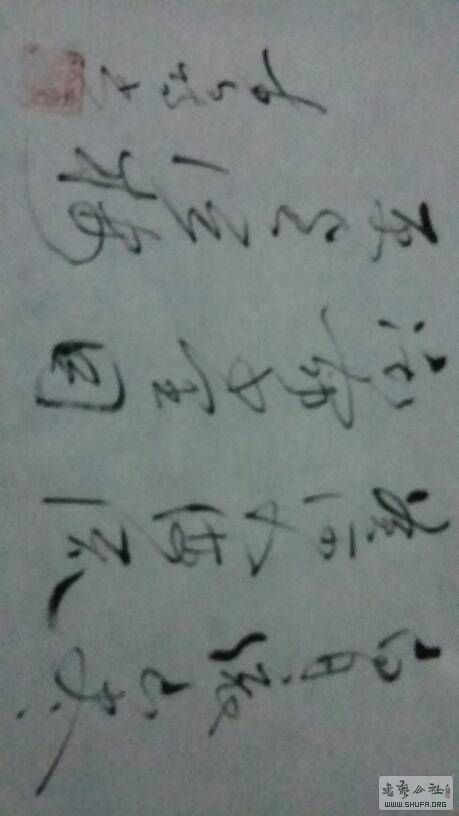 白日依山尽
黄河入海流
欲穷千里目
更上一层楼
书艺公社
WWW.SHUFA.ORG